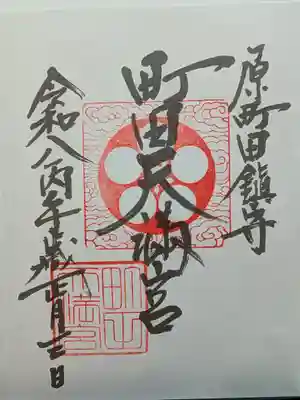 原町田鎮守
町田天満宮
令和八丙午歳正月三日